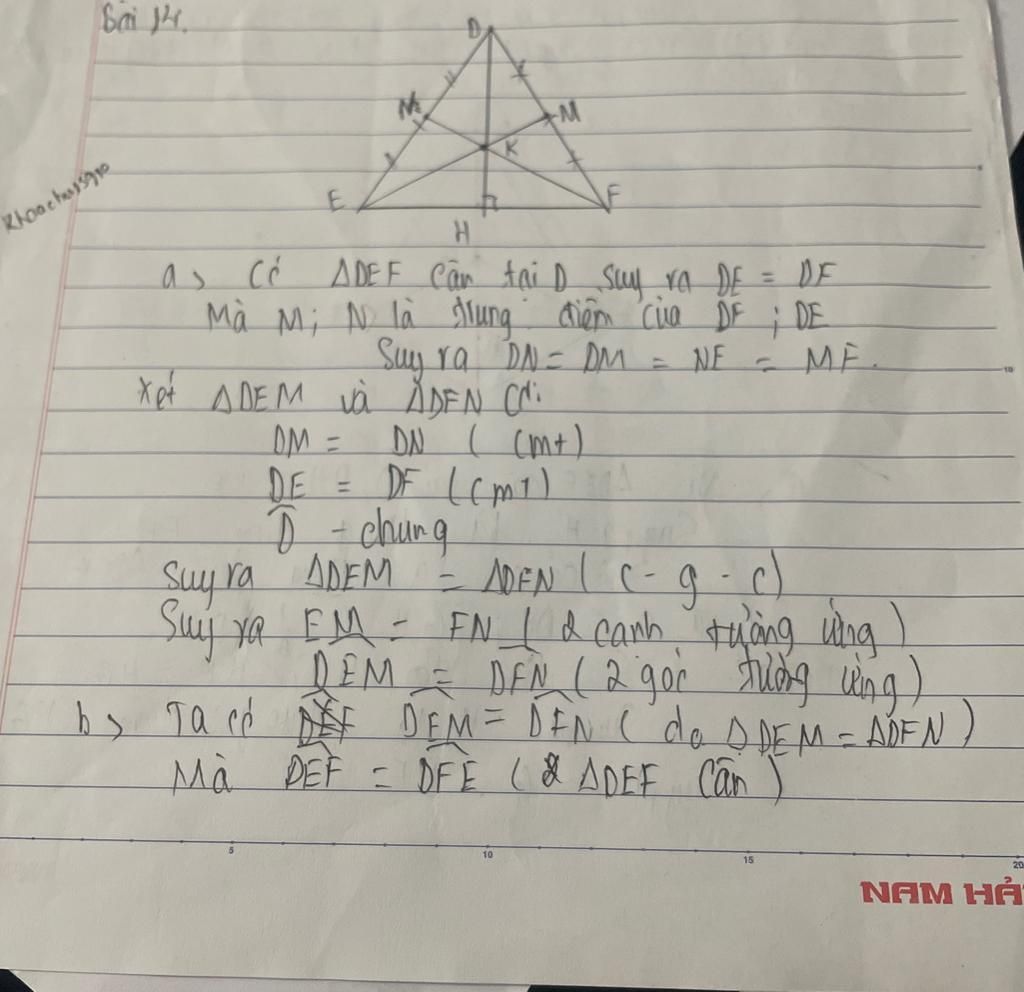 Bài 14.
D
N
M
K
E
F
H
Khoachus5910
a) Có ΔDEF cân tại D suy ra DE = DF
Mà M; N là trung điểm của DF ; DE
Suy ra DN = DM = NE = MF.
Xét ΔDEM và ΔDFN có:
DM = DN ( cmt)
DE = DF (cmt)
D̂ - chung
Suy ra ΔDEM = ΔDFN ( c - g - c)
Suy ra EM = FN ( 2 cạnh tương ứng )
DEM = DFN ( 2 góc tương ứng )
b) Ta có DEM = DFN ( do ΔDEM = ΔDFN )
Mà DEF = DFE ( ΔDEF cân )
5 10 15 20
10
NAM HẢ